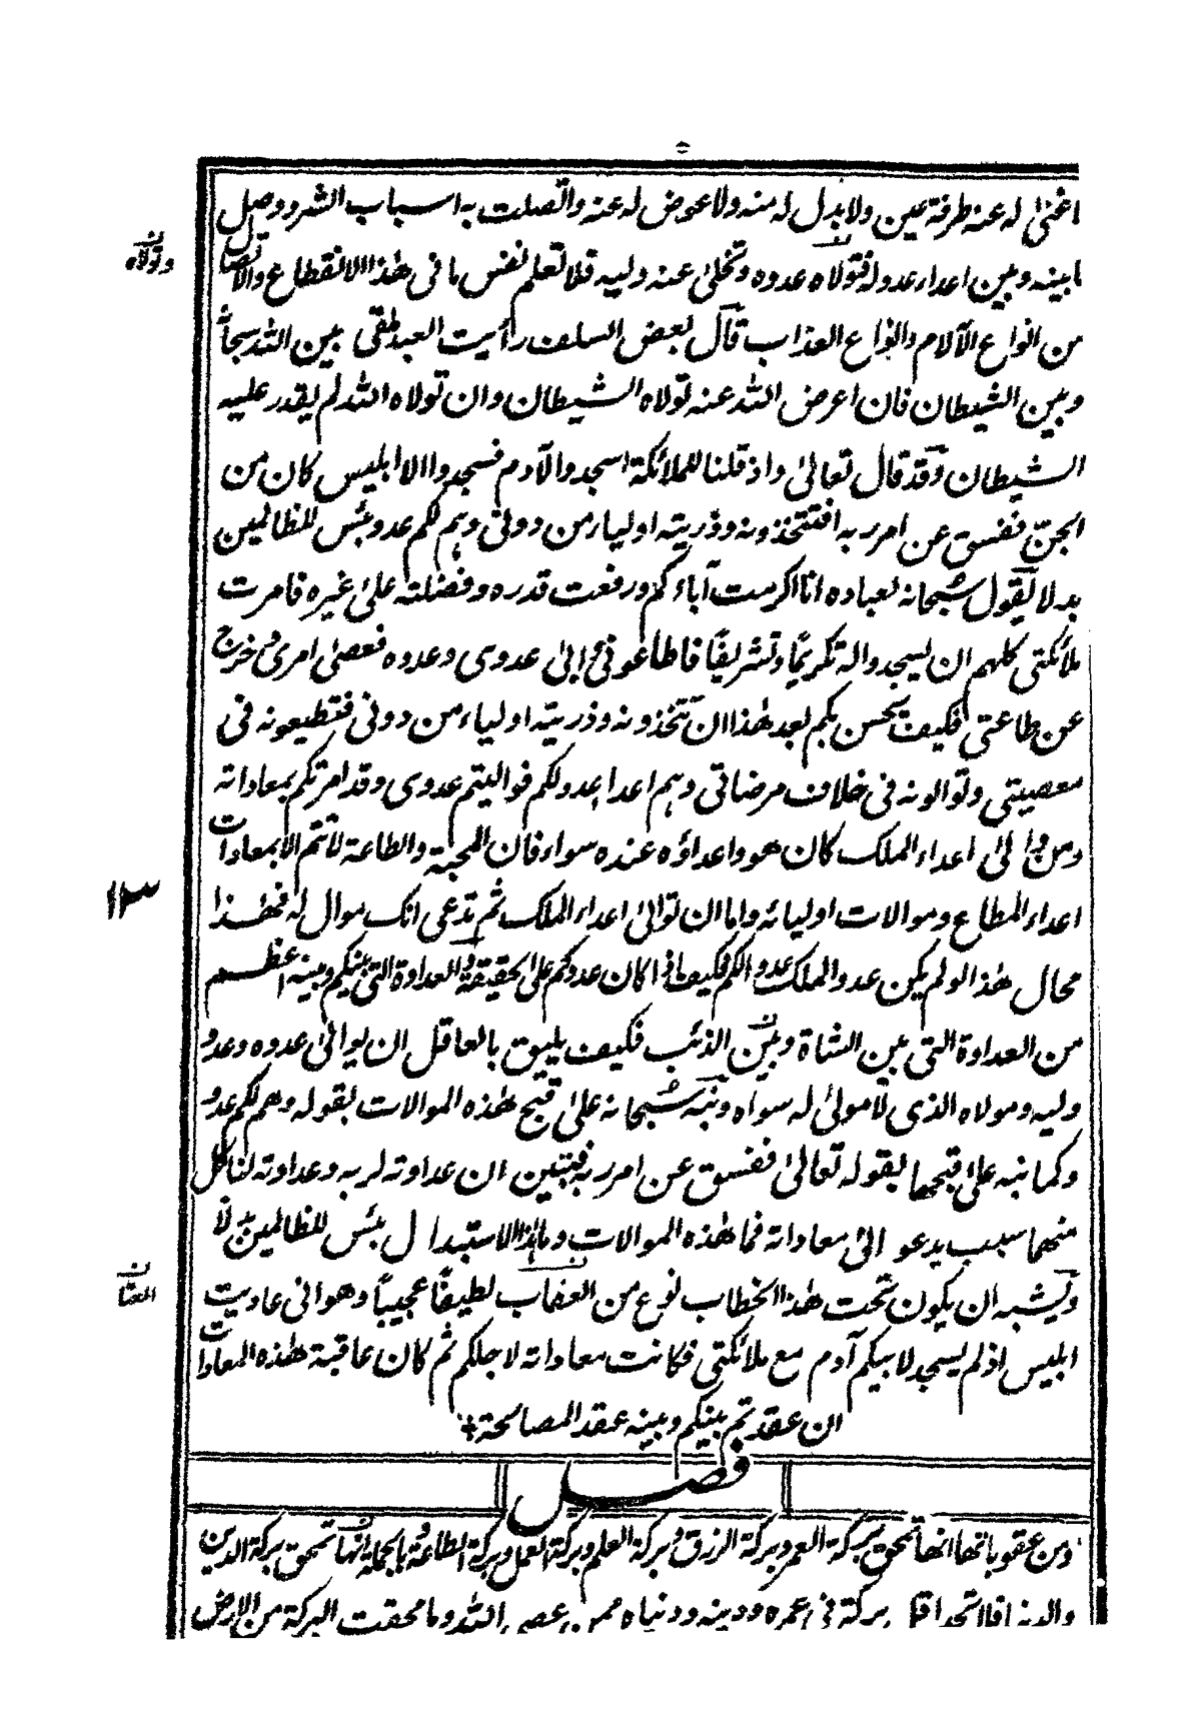 اغنى له عنه طرفة عين ولا بدل له منه ولا عوض له عنه واتصلت به اسباب الشر ووصل
ما بينه وبين اعداء عدوله فتولاه عدوه وتخلى عنه وليه فلا تعلم نفس ما فى هذا الانقطاع والاتصال
وتولاه
من انواع الآلام وانواع العذاب قال بعض السلف رأيت العبد ملقى بين الله سبحانه
وبين الشيطان فان اعرض الله عنه تولاه الشيطان وان تولاه الله لم يقدر عليه
الشيطان وقد قال تعالى واذ قلنا للملائكة اسجدوا لآدم فسجدوا الا ابليس كان من
الجن ففسق عن امر ربه افتتخذونه وذريته اولياء من دونى وهم لكم عدو بئس للظالمين
بدلا يقول سبحانه لعباده انا اكرمت آباءكم ورفعت قدره وفضلته على غيره فامرت
ملائكتى كلهم ان يسجدوا له تكريمًا وتشريفًا فاطاعونى وابى عدوى وعدوه فعصى امرى وخرج
عن طاعتى فكيف يحسن بكم بعد هذا ان تتخذونه وذريته اولياء من دونى فتطيعونه فى
معصيتى وتوالونه فى خلاف مرضاتى وهم اعدا عدو لكم فواليتم عدوى وقد امرتكم بمعاداته
ومن والى اعداء الملك كان هو واعداؤه عنده سواء فان المحبة والطاعة لا تتم الا بمعادات
اعداء المطاع وموالات اوليائه واما ان توالى اعداء الملك ثم تدعى انك موال له فهذا
١٣
محال هذا لو لم يكن عدو الملك عدوا لكم فكيف اذا كان عدوكم على الحقيقة والعداوة التى بينكم وبينه اعظم
من العداوة التى بين الشاة وبين الذئب فكيف يليق بالعاقل ان يوالى عدوه وعدو
وليه ومولاه الذى لا مولى له سواه ونبه سبحانه على قبح هذه الموالات بقوله وهم لكم عدو
وكما نبه على قبحها بقوله تعالى ففسق عن امر ربه فتبين ان عداوته لربه وعداوته لنا كل
منهما سبب يدعو الى معاداته فما هذه الموالات وما هذا الاستبدال بئس للظالمين بدلا
ويشبه ان يكون تحت هذا الخطاب نوع من العتاب لطيفًا عجيبًا وهو انى عاديت
العتاب
ابليس اذ لم يسجد لابيكم آدم مع ملائكتى فكانت معاداته لاجلكم ثم كان عاقبة هذه المعادات
ان عقد تم بينكم وبينه عقد المصالحة
فصل
ومن عقوباتها انها تمحق بركة العمر وبركة الرزق وبركة العلم وبركة العمل وبركة الطاعة وبالجملة انها تمحق بركة الدين
والدنيا فلا تجد اقل بركة فى عمره ودينه ودنياه ممن عصى الله وما محقت البركة من الارض